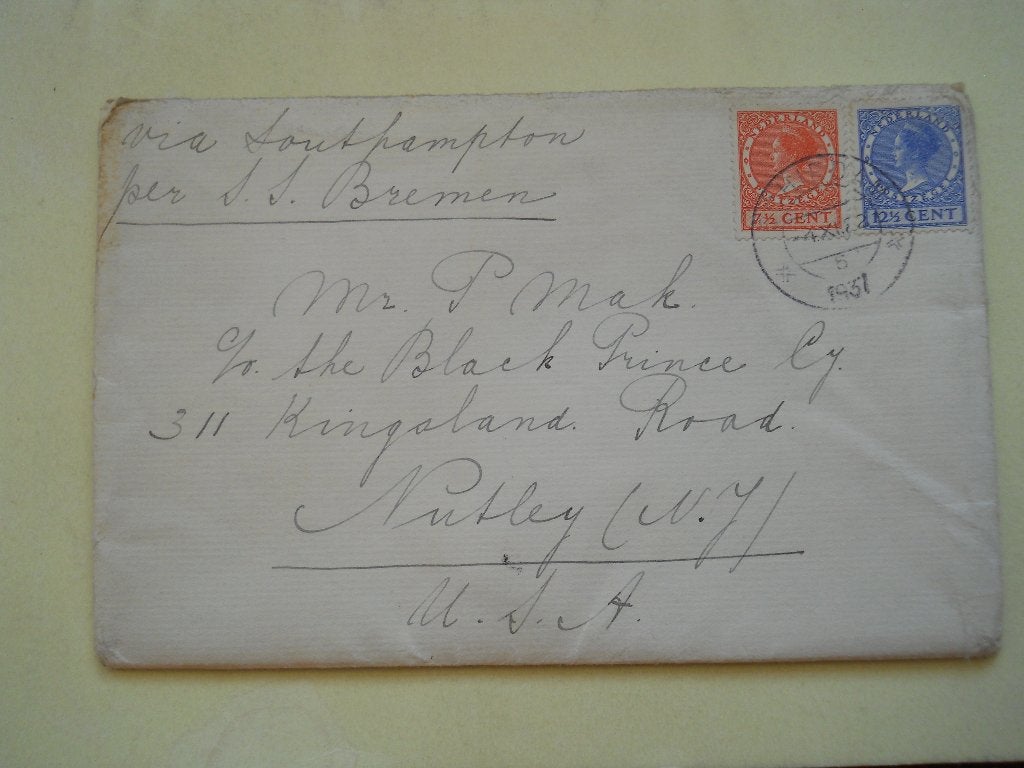 via Southampton
per S. S. Bremen
NEDERLAND
7½ CENT
NEDERLAND
12½ CENT
1931
Mr. P Mak.
c/o. the Black Prince Cy.
311 Kingsland. Road.
Nutley (N.J)
U. S. A.